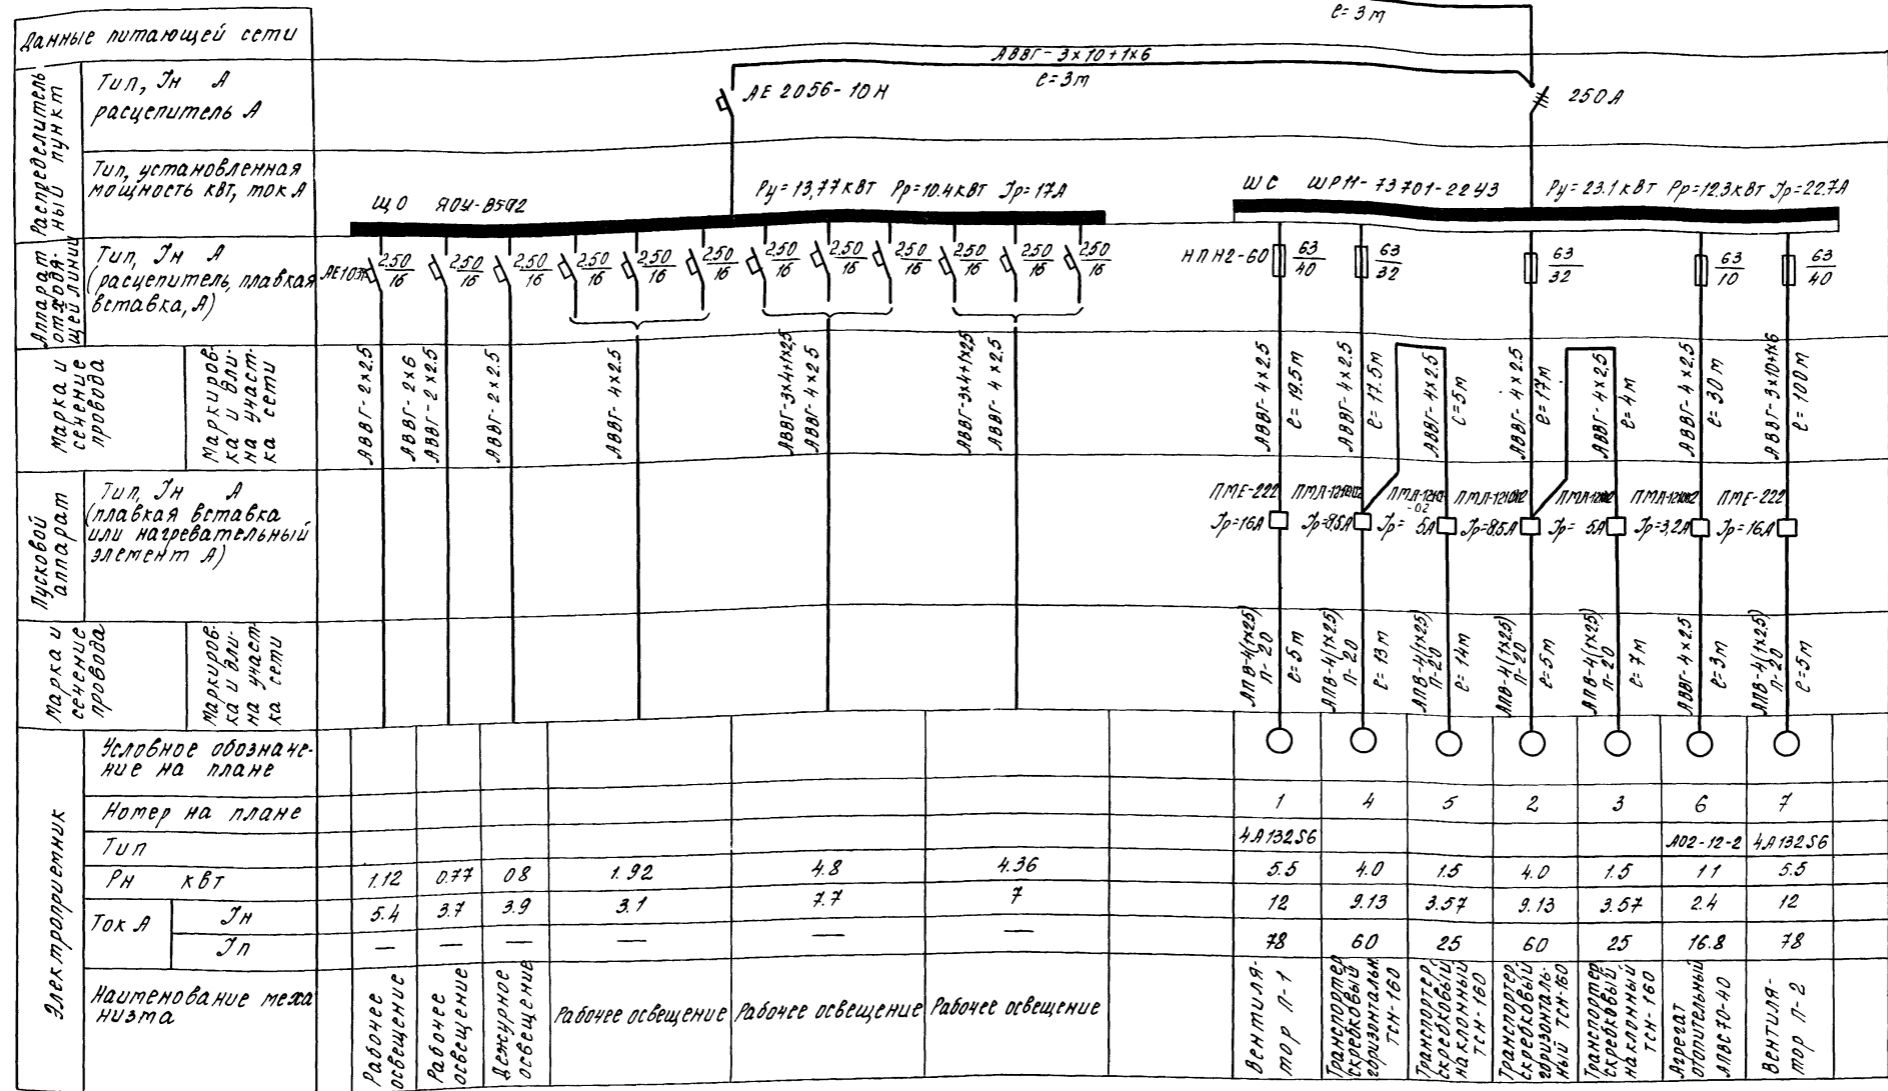 ℓ=3м
Данные питающей сети
АВВГ-3х10+1х6
ℓ=3м
Распределительный пункт
Тип, Iн А
расцепитель А
АЕ 2056-10Н
250А
Тип, установленная
мощность кВт, ток А
ЩО ЯОУ-8502
Ру=13,77кВт Рр=10.4кВт Iр=17А
ШС ШР11-73701-22У3
Ру=23.1кВт Рр=12.3кВт Iр=22.7А
Аппарат отходящей линии
Тип, Iн А
(расцепитель, плавкая
вставка, А)
2.50/16 2.50/16 2.50/16 2.50/16 2.50/16 2.50/16 2.50/16 2.50/16 2.50/16 2.50/16 2.50/16 2.50/16
НПН2-60 63/40 63/32 63/32 63/10 63/40
Марка и
сечение
провода
Маркиров-
ка и дли-
на участ-
ка сети
АВВГ-2х2.5
АВВГ-2х6
АВВГ-2х2.5
АВВГ-2х2.5
АВВГ-4х2.5
АВВГ-3х4+1х2,5
АВВГ-4х2.5
АВВГ-3х4+1х2,5
АВВГ-4х2.5
АВВГ-4х2.5
ℓ=19.5м
АВВГ-4х2.5
ℓ=17.5м
АВВГ-4х2.5
ℓ=5м
АВВГ-4х2.5
ℓ=17м
АВВГ-4х2,5
ℓ=4м
АВВГ-4х2.5
ℓ=30м
АВВГ-3х10+1х6
ℓ=100м
Пусковой
аппарат
Тип, Iн А
(плавкая вставка
или нагревательный
элемент А)
ПМЕ-222
Iр=16А
Iр=8,5А
Iр=5А
Iр=8,5А
Iр=5А
Iр=3,2А
ПМЕ-222
Iр=16А
Марка и
сечение
провода
Маркиров-
ка и дли-
на участ-
ка сети
АПВ-4(1х2.5)
п-20
ℓ=5м
АПВ-4(1х2.5)
п-20
ℓ=13м
АПВ-4(1х2.5)
п-20
ℓ=14м
АПВ-4(1х2.5)
п-20
ℓ=5м
АПВ-4(1х2.5)
п-20
ℓ=7м
АВВГ-4х2.5
ℓ=3м
АПВ-4(1х2.5)
п-20
ℓ=5м
Электроприемник
Условное обозначе-
ние на плане
Номер на плане
1 4 5 2 3 6 7
Тип
4А132S6 А02-12-2 4А132S6
Рн кВт
1.12 0.77 0.8 1.92 4.8 4.36 5.5 4.0 1.5 4.0 1.5 1.1 5.5
Ток А
Iн
5.4 3.7 3.9 3.1 7.7 7 12 9.13 3.57 9.13 3.57 2.4 12
Iп
— — — — — — 78 60 25 60 25 16.8 78
Наименование меха
низма
Рабочее
освещение
Рабочее
освещение
Дежурное
освещение
Рабочее освещение
Рабочее освещение
Рабочее освещение
Вентиля-
тор П-1
Транспортер
скребковый
горизонтальн.
ТСН-160
Транспортер
скребковый
наклонный
ТСН-160
Транспортер
скребковый
горизонталь-
ный ТСН-160
Транспортер
скребковый
наклонный
ТСН-160
Агрегат
отопительный
АПВС70-40
Вентиля-
тор П-2